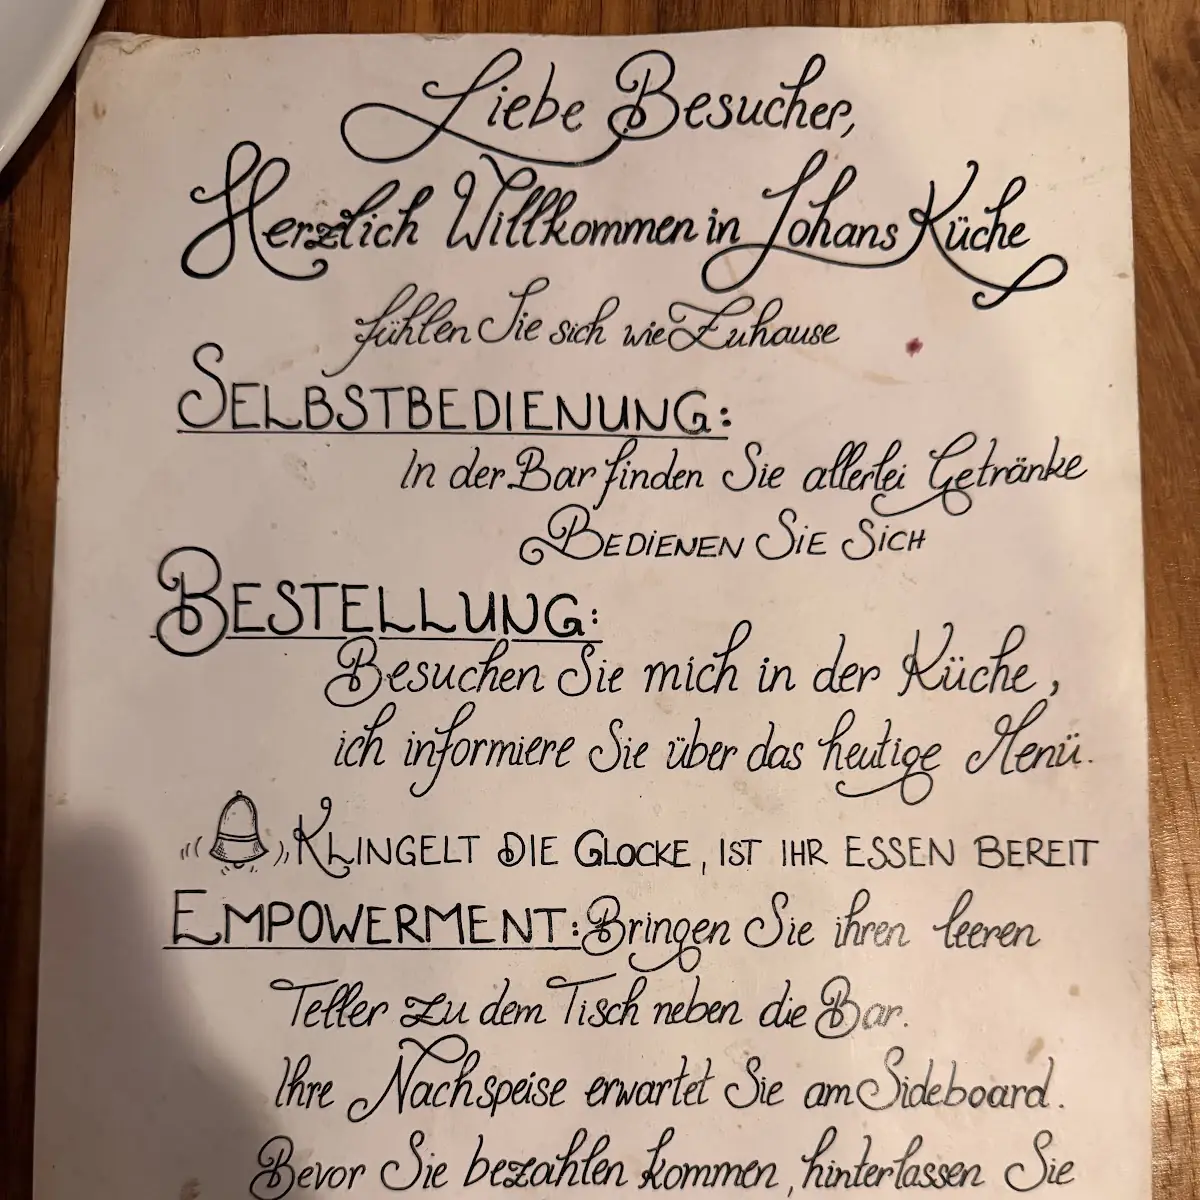 Liebe Besucher,
Herzlich Willkommen in Johans Küche
fühlen Sie sich wie Zuhause
SELBSTBEDIENUNG:
In der Bar finden Sie allerlei Getränke
BEDIENEN SIE SICH
BESTELLUNG:
Besuchen Sie mich in der Küche,
ich informiere Sie über das heutige Menü.
KLINGELT DIE GLOCKE, IST IHR ESSEN BEREIT
EMPOWERMENT: Bringen Sie ihren leeren
Teller zu dem Tisch neben die Bar.
Ihre Nachspeise erwartet Sie am Sideboard.
Bevor Sie bezahlen kommen, hinterlassen Sie